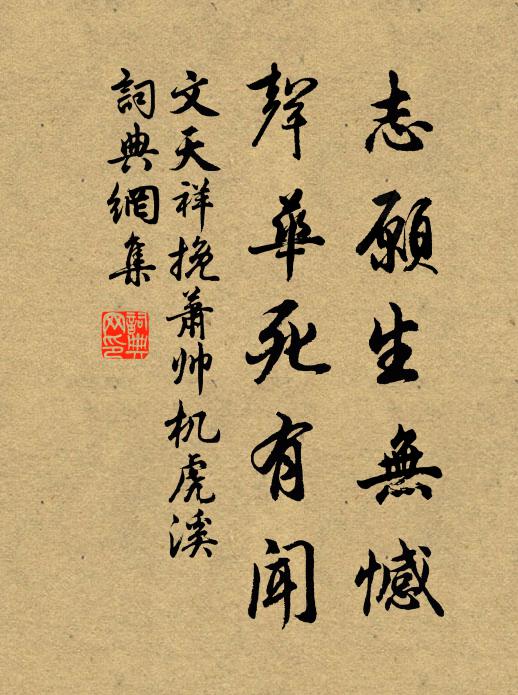 志願生無憾
聲華死有聞
文天祥挽蕭帅机虎溪
詞典網集
詞典网印